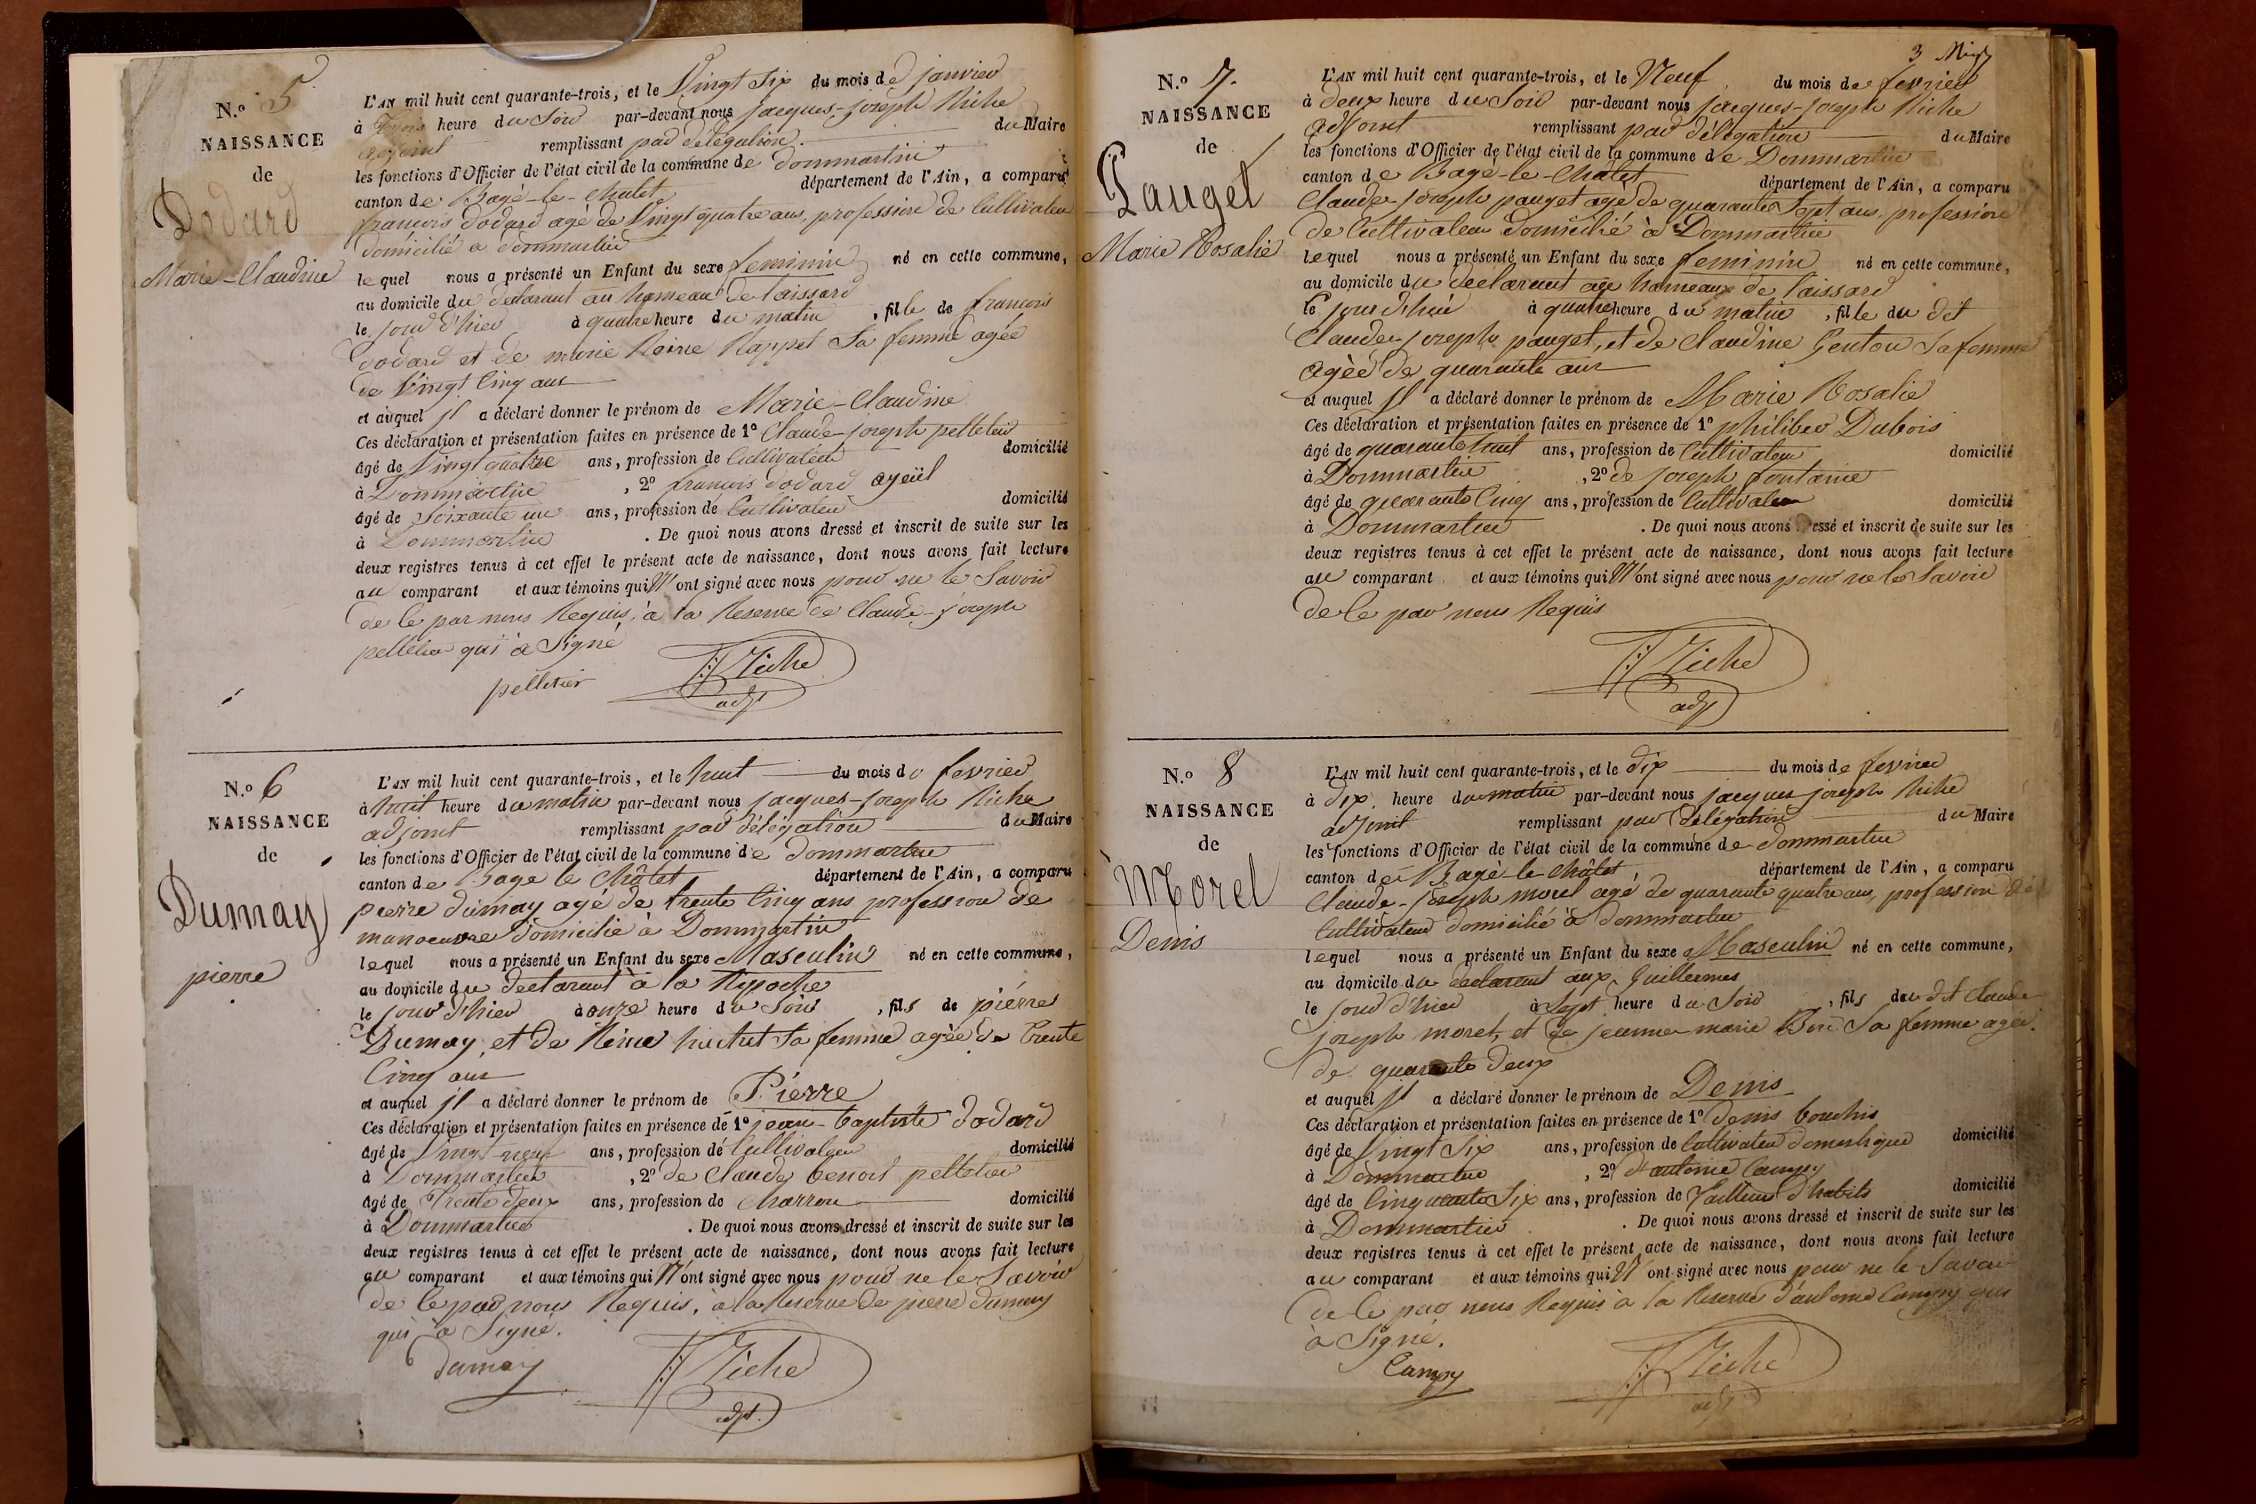 N.o 5
NAISSANCE
de
Dodard
Marie-Claudine
L'AN mil huit cent quarante-trois, et le Vingt Six du mois de janvier
à Trois heure du Soir par-devant nous jacques-joseph Riche
adjoint remplissant par délégation du Maire
les fonctions d'Officier de l'état civil de la commune de dommartin
canton de Bagé-le-Chatel département de l'Ain, a comparu
francois dodard agé de Vingt quatre ans, profession de Cultivateur
domicilié a dommartin
lequel nous a présenté un Enfant du sexe feminin né en cette commune,
au domicile du declarant au hameau de taissard
le jour d'hier à quatre heure du matin, fille de francois
dodard et de marie Reine Rappet Sa femme agée
de Vingt Cinq ans
et auquel jl a déclaré donner le prénom de Marie-Claudine
Ces déclaration et présentation faites en présence de 1o Claude-joseph pelletier
âgé de Vingt quatre ans, profession de Cultivateur domicilié
à Dommartin, 2o francois dodard ayeül
âgé de Soixante un ans, profession de Cultivateur domicilié
à Dommartin. De quoi nous avons dressé et inscrit de suite sur les
deux registres tenus à cet effet le présent acte de naissance, dont nous avons fait lecture
au comparant et aux témoins qui N'ont signé avec nous pour ne le Savoir
de ce par nous Requis, à la Reserve de Claude-joseph
pelletier qui à Signé
pelletier JJ Riche
adjt
N.o 6
NAISSANCE
de
Dumay
pierre
L'AN mil huit cent quarante-trois, et le huit du mois de fevrier
à huit heure du matin par-devant nous jacques-joseph Riche
adjoint remplissant par délégation du Maire
les fonctions d'Officier de l'état civil de la commune de dommartin
canton de Bage le Châtel département de l'Ain, a comparu
pierre dumay agé de trente Cinq ans profession de
manoeuvre domicilié à Dommartin
lequel nous a présenté un Enfant du sexe Masculin né en cette commune,
au domicile du declarant à la
le jour d'hier à onze heure du Soir, fils de piérre
Dumay, et de Reine Sa femme agèe de trente
Cinq ans
et auquel jl a déclaré donner le prénom de Piérre
Ces déclaration et présentation faites en présence de 1o jean-baptiste dodard
âgé de Vingt-neuf ans, profession de Cultivateur domicilié
à Dommartin, 2o de Claude benoit pelletier
âgé de Trente deux ans, profession de Charron domicilié
à Dommartin. De quoi nous avons dressé et inscrit de suite sur les
deux registres tenus à cet effet le présent acte de naissance, dont nous avons fait lecture
au comparant et aux témoins qui N'ont signé avec nous pour ne le Savoir
de ce par nous Requis, à la Reserve de pierre dumay
qui à Signé.
dumay JJ Riche
adjt.
3
N.o 7.
NAISSANCE
de
Pauget
Marie Rosalie
L'AN mil huit cent quarante-trois, et le Neuf du mois de fevrier
à deux heure du Soir par-devant nous jacques-joseph Riche
adjoint remplissant par délégation du Maire
les fonctions d'Officier de l'état civil de la commune de Dommartin
canton de Bagé-le-Châtel département de l'Ain, a comparu
Claude-joseph pauget agé de quarante Sept ans, profession
de Cultivateur domicilié à Dommartin
lequel nous a présenté un Enfant du sexe feminin né en cette commune,
au domicile du declarant au hameaux de taissard
le jour d'hier à quatre heure du matin, fille du dit
Claude-joseph pauget, et de Claudine Genton Sa femme
agèe de quarante ans
et auquel jl a déclaré donner le prénom de Marie Rosalie
Ces déclaration et présentation faites en présence de 1o philiber Dubois
âgé de quarante huit ans, profession de Cultivateur domicilié
à Dommartin, 2o de joseph fontaine
âgé de quarante Cinq ans, profession de Cultivateur domicilié
à Dommartin. De quoi nous avons dressé et inscrit de suite sur les
deux registres tenus à cet effet le présent acte de naissance, dont nous avons fait lecture
au comparant et aux témoins qui N'ont signé avec nous pour ne le Savoir
de ce par nous Requis
JJ Riche
adjt
N.o 8
NAISSANCE
de
Morel
Denis
L'AN mil huit cent quarante-trois, et le dix du mois de fevrier
à dix heure du matin par-devant nous jacques joseph Riche
adjoint remplissant par délégation du Maire
les fonctions d'Officier de l'état civil de la commune de dommartin
canton de Bagé-le-Châtel département de l'Ain, a comparu
Claude-joseph morel agé de quarante quatre ans, profession de
Cultivateur domicilié à dommartin
lequel nous a présenté un Enfant du sexe Masculin né en cette commune,
au domicile du declarant aux Guillermes
le jour d'hier à Sept heure du Soir, fils du dit Claude
joseph morel, et de jeanne marie Sa femme agée
de quarante deux
et auquel jl a déclaré donner le prénom de Denis
Ces déclaration et présentation faites en présence de 1o denis bouchis
âgé de Vingt Six ans, profession de Cultivateur domestique domicilié
à Dommartin, 2o d'antoine Campy
âgé de Cinquante Six ans, profession de Tailleur d'habits domicilié
à Dommartin. De quoi nous avons dressé et inscrit de suite sur les
deux registres tenus à cet effet le présent acte de naissance, dont nous avons fait lecture
au comparant et aux témoins qui N'ont signé avec nous pour ne le Savoir
de ce par nous Requis à la Reserve d'antoine Campy qui
à Signé.
Campy JJ Riche
adjt